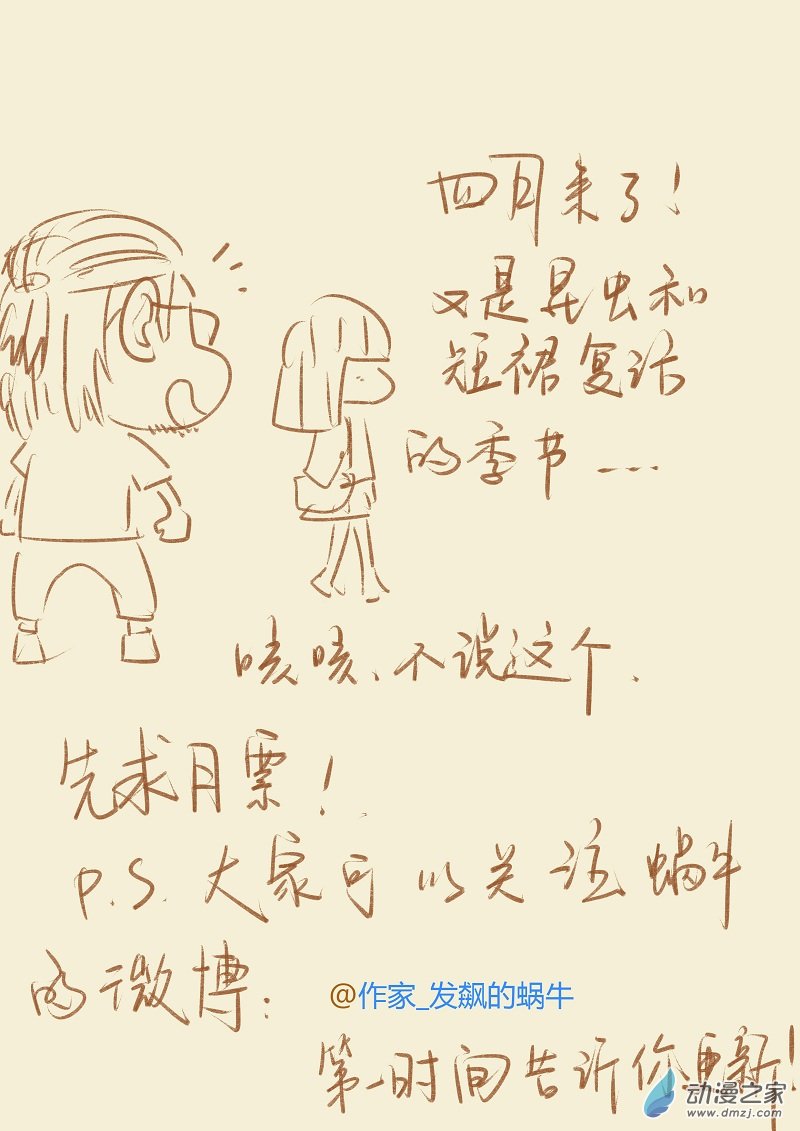 四月来了!
又是昆虫和
短裙复活
的季节……
咳咳、不说这个.
先求月票!
P.S.大家可以关注蜗牛
的微博:
@作家_发飙的蜗牛
第一时间告诉你更新!
动漫之家
www.dmzj.com